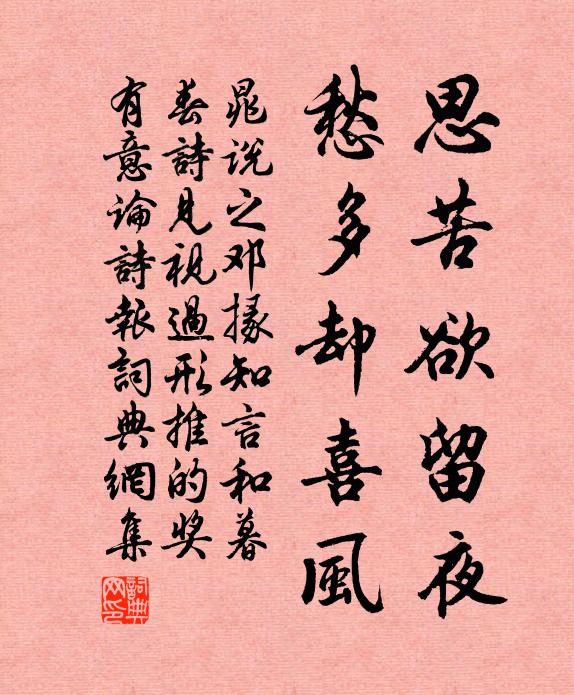 思苦欲留夜
愁多却喜風
晁说之邓掾知言和暮
春詩見視過形推的奬
有意論詩報詞典網集
詞典
网印